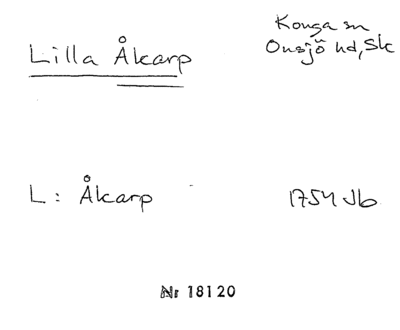 Konga sn
Lilla Åkarp
Onsjö hd, Sk
L: Åkarp
1754 Jb
Nr 18120